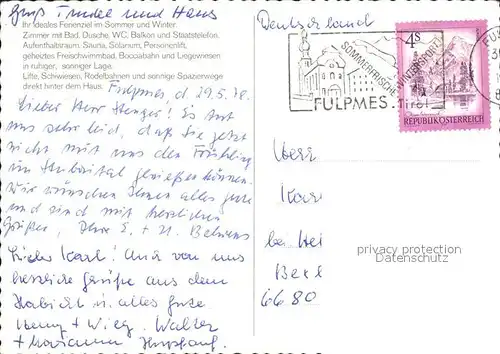 Gruß Trudle und Hans
Ihr ideales Ferienziel im Sommer und Winter.
Zimmer mit Bad, Dusche, WC, Balkon und Staatstelefon.
Aufenthaltsraum, Sauna, Solarium, Personenlift,
geheiztes Freischwimmbad, Bocciabahn und Liegewiesen
in ruhiger, sonniger Lage.
Lifte, Schiwiesen, Rodelbahnen und sonnige Spazierwege
direkt hinter dem Haus.
Fulpmes, d. 29.5.78.
Lieber Herr Henger! Es tut
uns sehr leid, daß Sie jetzt
nicht mit uns den Frühling
im Stubaital genießen können.
Wir wünschen Ihnen alles gute
und sind mit herzlichen
Grüßen, Ihre E. + H. Behrens
Lieber Karl! Auch von uns
herzliche Grüße aus dem
Habicht u. alles Gute
Walter
+ Marianne
Deutschland
SOMMERFRISCHE WINTERSPORT
FULPMES - Tirol
4 S
REPUBLIK ÖSTERREICH
Herr
Kar
bei Hei
Bex
6680
privacy protection
VOLLMER